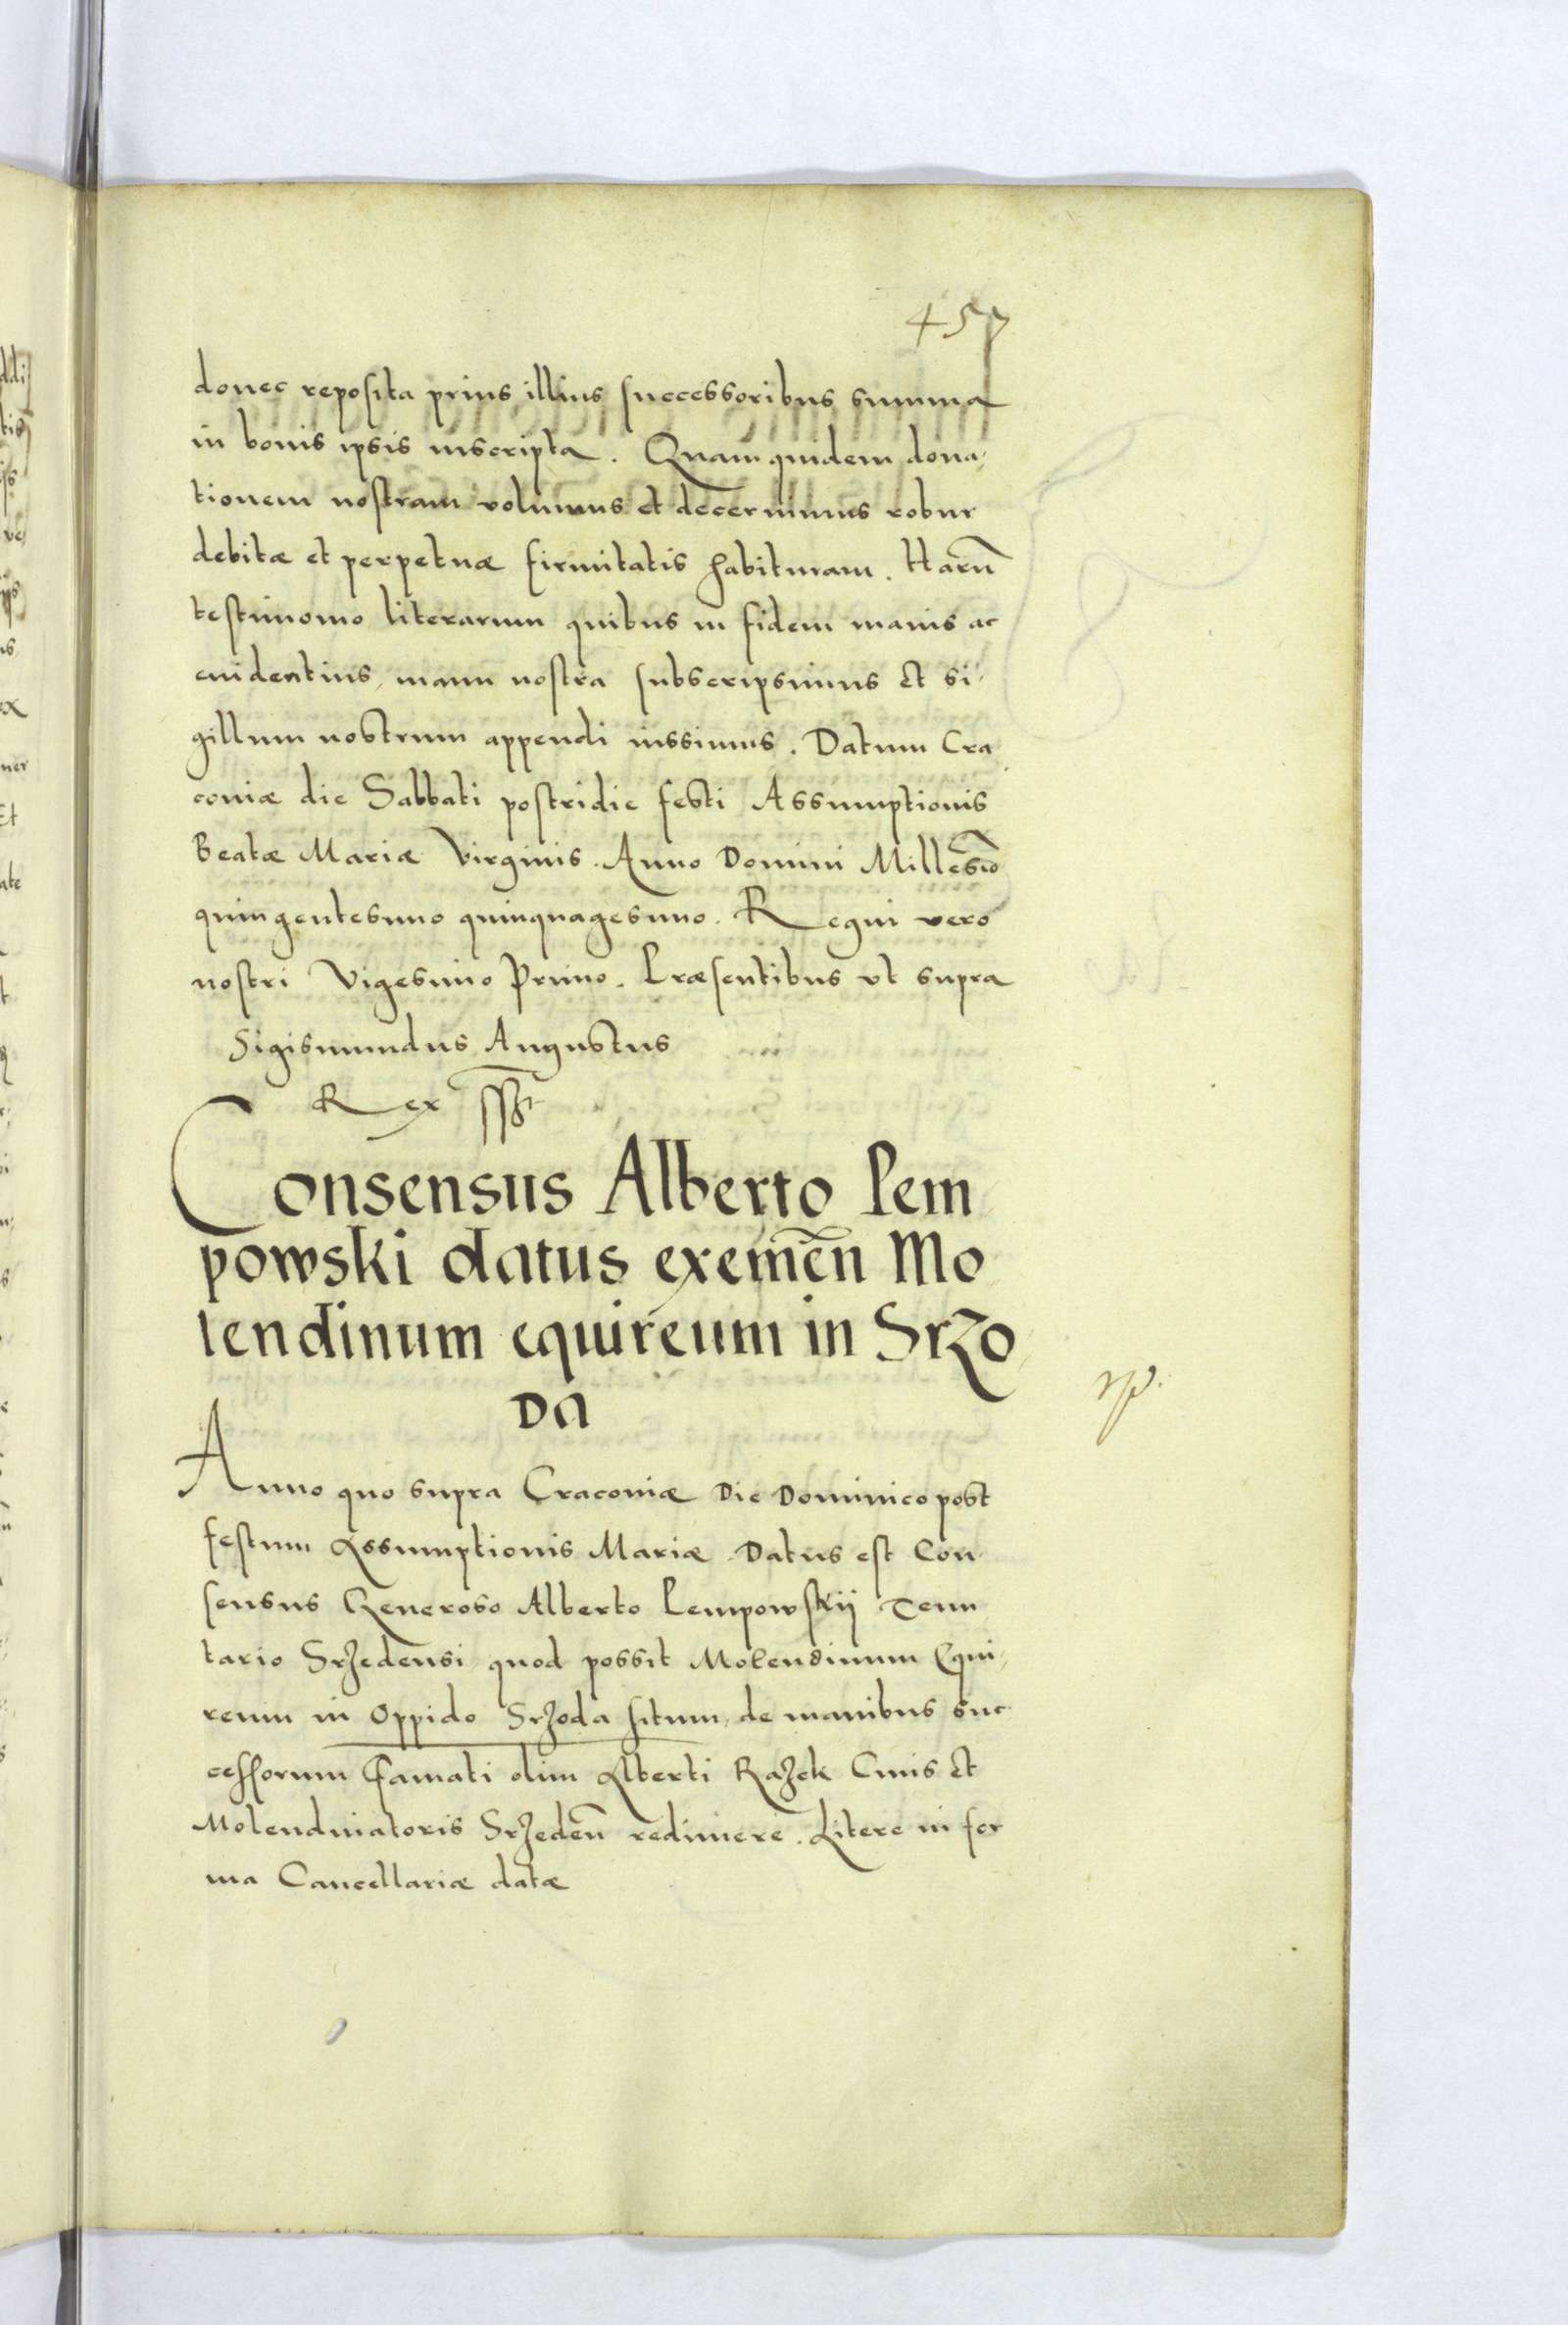 457
donec reposita prius illius successoribus summa
in bonis ipsis inscripta. Quam quidem dona,
tionem nostram volumus et decernimus robur
debitæ et perpetuæ firmitatis habituram. Harū
testimonio literarum quibus in fidem maius ac
euidentius, manu nostra subscripsimus et si,
gillum nostrum appendi iussimus. Datum Cra,
couiæ die Sabbati postridie festi Assumptionis
Beatæ Mariæ Virginis. Anno Domini Millesīo
quingentesimo quinquagesimo. Regni vero
nostri Vigesimo Primo. Præsentibus vt supra
Sigismundus Augustus
Rex sst
Consensus Alberto Lem
powski datus exemēn Mo,
lendinum equireum in Srzo,
da
Anno quo supra Cracouiæ Die Dominico post
festum Assumptionis Mariæ Datus est Con,
sensus Generoso Alberto Lempowskij Tenu
tario Srzedensi quod possit Molendinum Equi,
reum in Oppido Srzoda situm, de manibus suc
cessorum famati olim Alberti Razek Ciuis et
Molendinatoris Srzedeñ redimere. Litere in for
ma Cancellariæ datæ